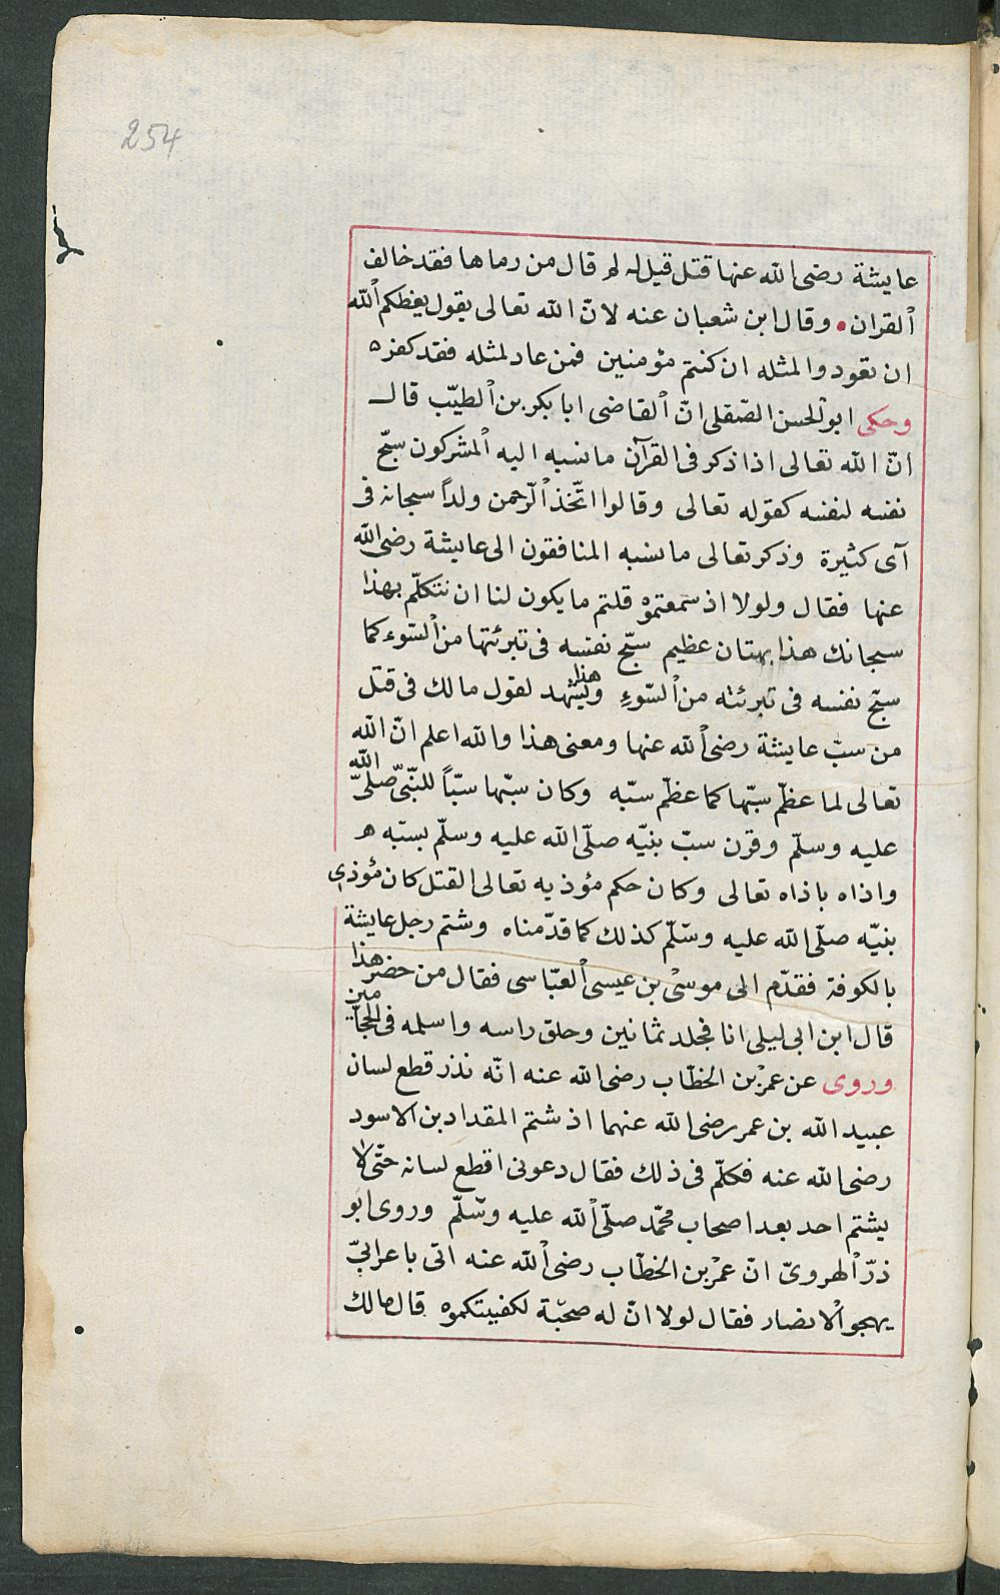 254
عايشة رضى الله عنها قتل قيل له لم قال من رماها فقد خالف
القران • وقال ابن شعبان عنه لانّ الله تعالى يقول يعظكم الله
ان تعودوا لمثله ان كنتم مؤمنين فمن عاد لمثله فقد كفر ه
وحكى ابو الحسن الصّقلى انّ القاضى ابا بكر بن الطيّب قال
انّ الله تعالى اذا ذكر فى القرآن ما نسبه اليه المشركون سبّح
نفسه لنفسه كقوله تعالى وقالوا اتّخذ الرّحمن ولداً سبحانه فى
آى كثيرة وذكر تعالى ما نسبه المنافقون الى عايشة رضى الله
عنها فقال ولولا اذ سمعتموْ قلتم ما يكون لنا ان نتكلّم بهذا
سبحانك هذا بهتان عظيم سبّح نفسه فى تبرئتها من السّوء كما
سبّح نفسه فى تبرئته من السّوءِ وهذا يشهد لقول مالك فى قتل
من سبّ عايشة رضى الله عنها ومعنى هذا والله اعلم انّ الله
تعالى لما عظّم سبّها كما عظّم سبّه وكان سبّها سبّاً للنّبىّ صلىّ الله
عليه وسلّم وقرن سبّ نبيّه صلّى الله عليه وسلّم بسبّه
واذاه باذاه تعالى وكان حكم مؤذيه تعالى القتل كان مؤذى
نبيّه صلّى الله عليه وسّلّم كذلك كما قدّمناه وشتم رجل عايشة
بالكوفة فقدّم الى موسى بن عيسى العبّاسى فقال من حضر هذا
قال ابن ابى ليلى انا فجلد ثمانين وحلق راسه واسلمه فى الحجّامين
وروى عن عمر بن الخطّاب رضى الله عنه انّه نذر قطع لسان
عبيد الله بن عمر رضى الله عنهما اذ شتم المقداد بن الاسود
رضى الله عنه فكلّم فى ذلك فقال دعونى اقطع لسانه حتّى لا
يشتم احد بعد اصحاب محمّد صلّى الله عليه وسّلّم وروى ابو
ذرّ الهروىّ انّ عمر بن الخطّاب رضى الله عنه اتى باعرابىّ
يهجو الانصار فقال لولا انّ له صحبّة لكفيتكموه قال مالك